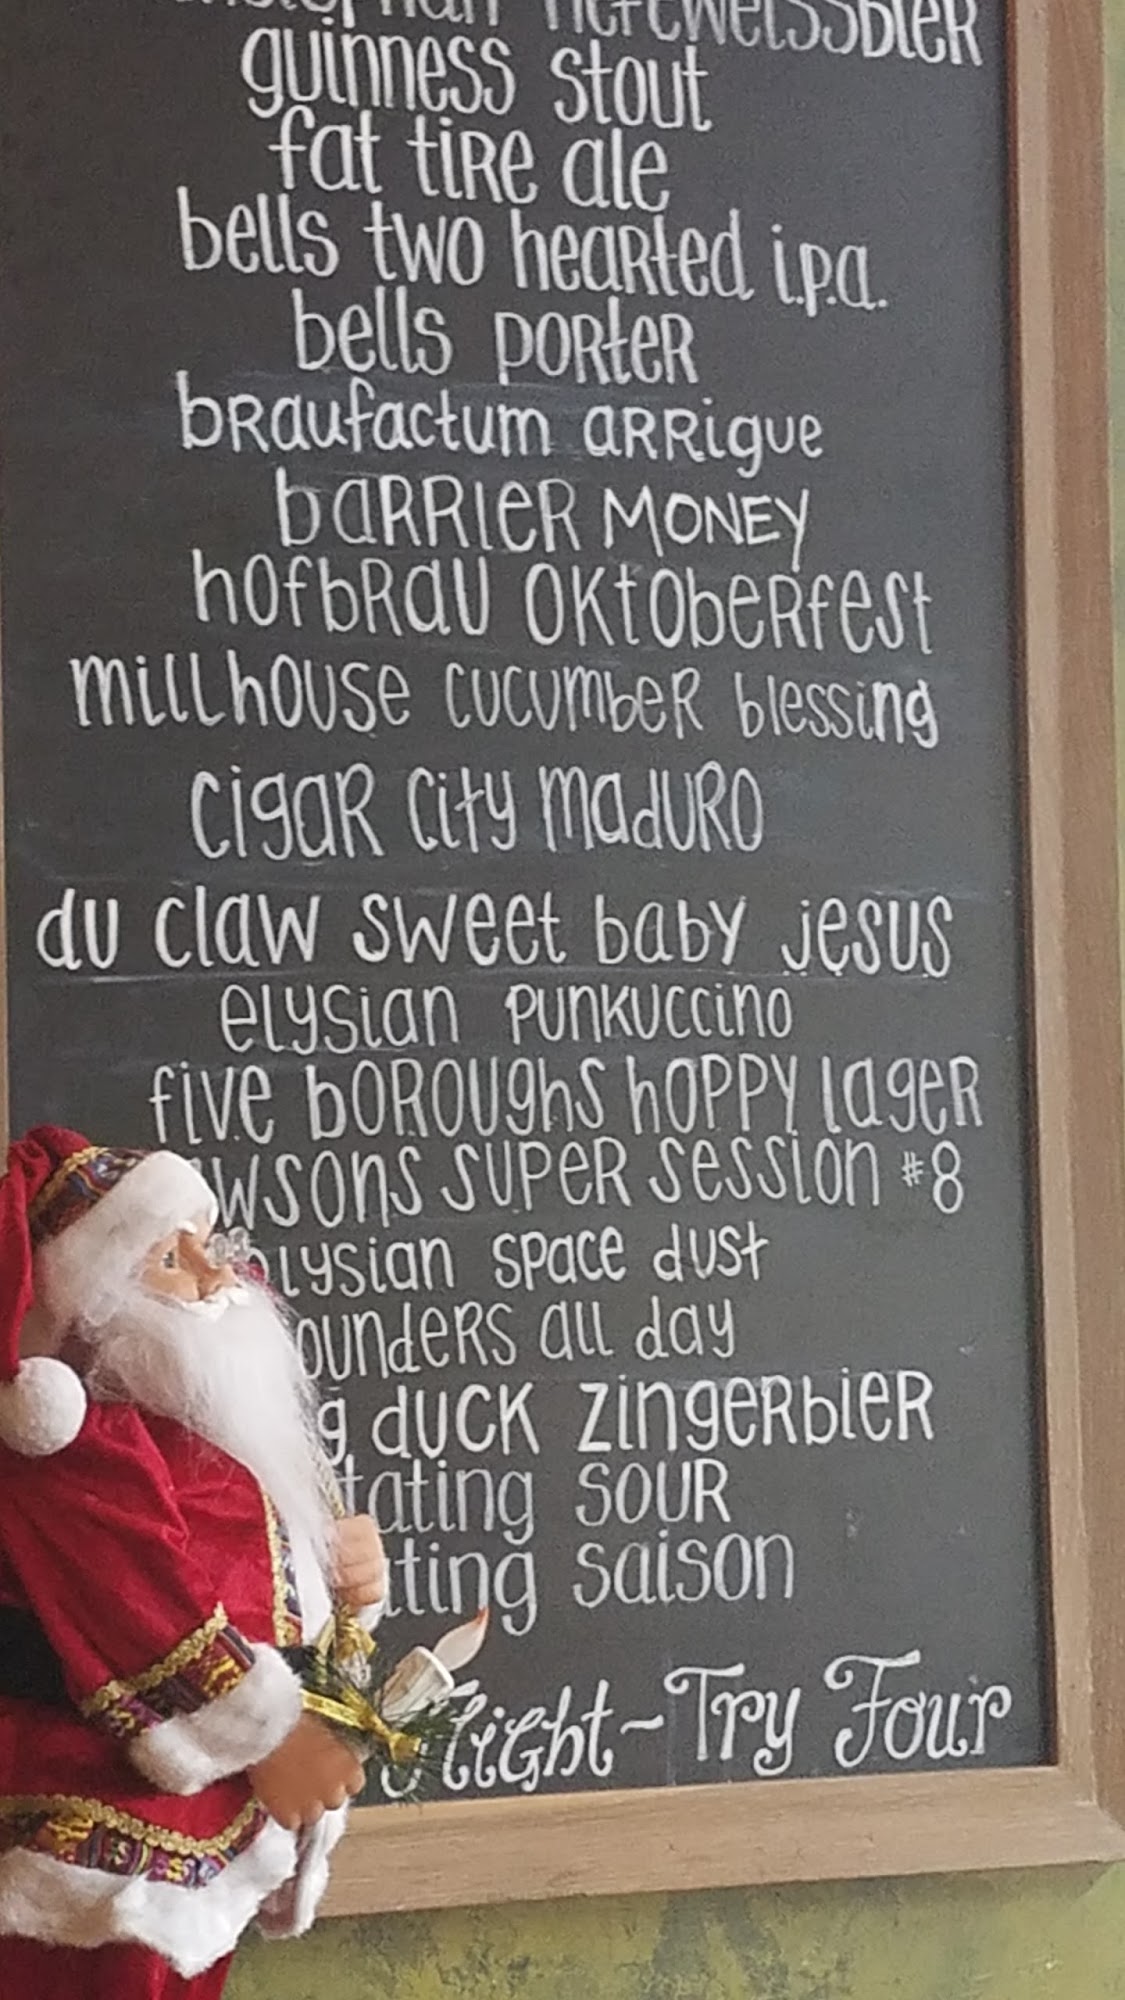 hefeweissbier
guinness stout
fat tire ale
bells two hearted i.p.a.
bells porter
braufactum arrigue
barrier MONEY
hofbrau oktoberfest
millhouse cucumber blessing
cigar city maduro
du claw sweet baby jesus
elysian punkuccino
five boroughs hoppy lager
wsons super session #8
lysian space dust
ounders all day
g duck zingerbier
tating sour
ting saison
flight ~ Try Four